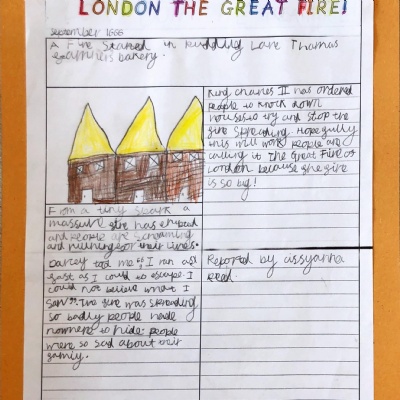 LONDON THE GREAT FIRE!
September 1666
A Fire Started in Pudding Lane Thomas
bakery.
King charles II has ordered
people to knock down
houses to try and stop the
fire spreading. Hopefully
this will work people are
calling it The Great Fire of
London because the fire
is so big!
From a tiny spark a
massive fire has erupted
and people are screaming
and running for their lives.
told me "I ran as
fast as I could to escape. I
could not believe what I
saw". The fire was spreading
so badly people hade
nowhere to hide. people
were so sad about their
family.
Reported by
read